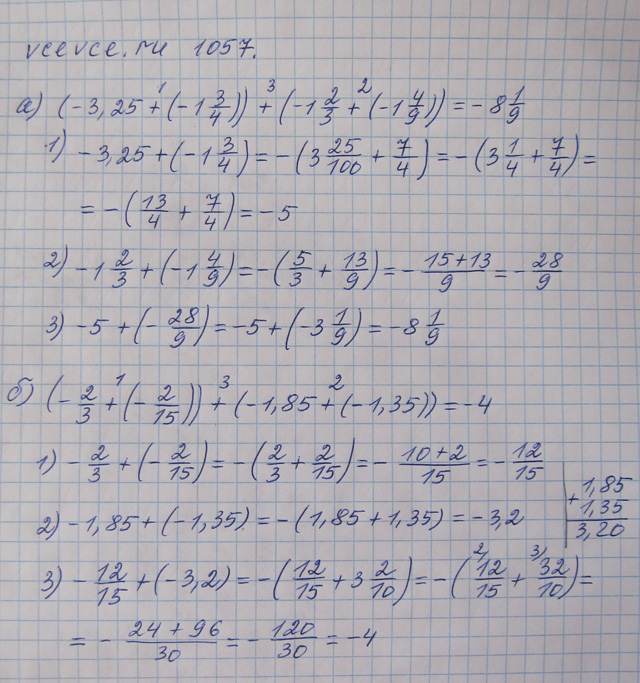 vcevce.ru 1057.
а) (-3,25 + (-1 3/4)) + (-1 2/3 + (-1 4/9)) = -8 1/9
1) -3,25 + (-1 3/4) = -(3 25/100 + 7/4) = -(3 1/4 + 7/4) =
= -(13/4 + 7/4) = -5
2) -1 2/3 + (-1 4/9) = -(5/3 + 13/9) = - (15+13)/9 = - 28/9
3) -5 + (- 28/9) = -5 + (-3 1/9) = -8 1/9
б) (- 2/3 + (- 2/15)) + (-1,85 + (-1,35)) = -4
1) - 2/3 + (- 2/15) = -(2/3 + 2/15) = - (10+2)/15 = - 12/15
2) -1,85 + (-1,35) = -(1,85 + 1,35) = -3,2
+ 1,85
1,35
3,20
3) - 12/15 + (-3,2) = -(12/15 + 3 2/10) = -(12/15 + 32/10) =
= - (24 + 96)/30 = - 120/30 = -4